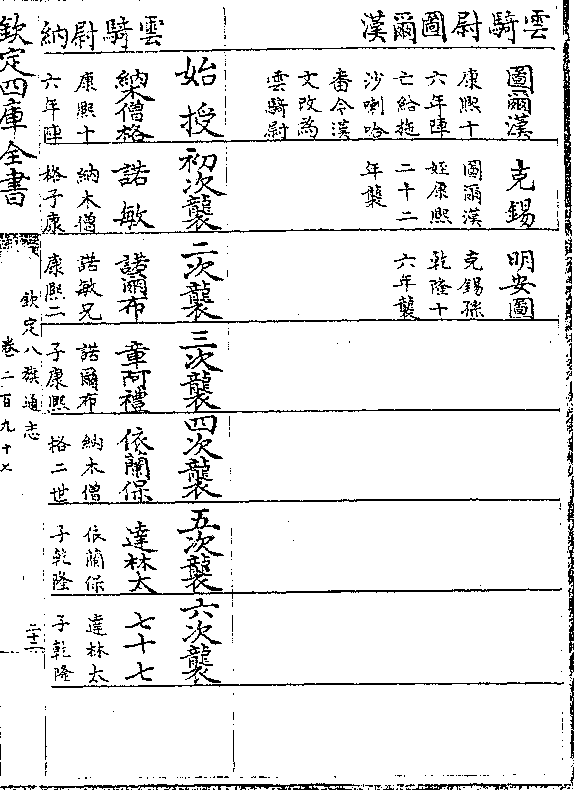 雲騎尉圖爾漢
圖爾漢
康熙十
六年陣
亡給拖
沙喇哈
番今漢
文改為
雲騎尉
克錫
圖爾漢
姪康熙
二十二
年襲
明安圖
克錫孫
乾隆十
六年襲
雲騎尉納
始授
初次襲
二次襲
三次襲
四次襲
五次襲
六次襲
納木僧格
康熙十
六年陣
諾敏
納木僧
格子康
諾爾布
諾敏兄
康熙二
章阿禮
諾爾布
子康熙
依蘭保
納木僧
格二世
達林太
依蘭保
子乾隆
七十七
達林太
子乾隆
欽定四庫全書
欽定八旗通志
卷二百九十七
二十二